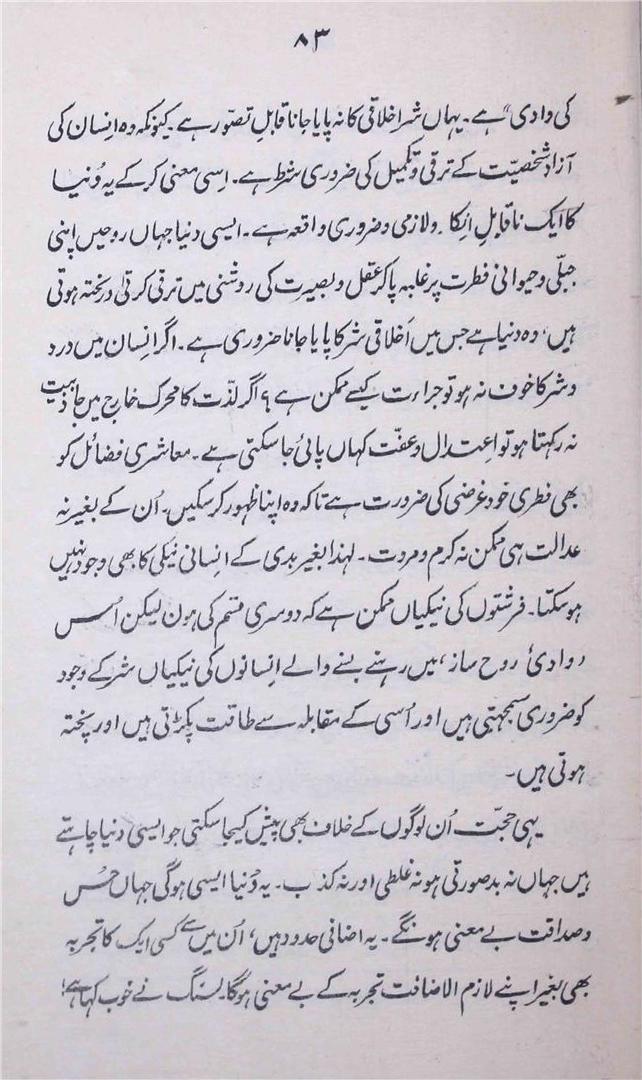 ۸۳
کی وادی“ ہے۔ یہاں شر اخلاقی کا نہ پایا جانا قابلِ تصوّر ہے۔ کیونکہ وہ انسان کی
آزاد شخصیّت کے ترقی و تکمیل کی ضروری شرط ہے۔ اِسی معنی کر کے یہ دُنیا
کا ایک ناقابلِ اِنکار ولازمی و ضروری واقعہ ہے۔ ایسی دنیا جہاں روحیں اپنی
جبلّی و حیوانی فطرت پر غلبہ پا کر عقل و بصیرت کی روشنی میں ترقی کرتی و پختہ ہوتی
ہیں، وہ دنیا ہے جس میں اَخلاقی شر کا پایا جانا ضروری ہے۔ اگر اِنسان میں درد
و شر کا خوف نہ ہو تو جراءت کیسے ممکن ہے؟ اگر لذّت کا محرک خارج میں جاذبیت
نہ رکہتا ہو تو اعتدال و عفّت کہاں پائی جا سکتی ہے۔ معاشری فضائل کو
بھی فطری خود غرضی کی ضرورت ہے تاکہ وہ اپنا ظہور کر سکیں۔ اُن کے بغیر نہ
عدالت ہی ممکن نہ کرم و مروت۔ لہذا بغیر بدی کے اِنسانی نیکی کا بھی وجود نہیں
ہو سکتا۔ فرشتوں کی نیکیاں ممکن ہے کہ دوسری قسم کی ہون لیکن اُس
’وادئ روح ساز‘ میں رہنے بسنے والے اِنسانوں کی نیکیاں شر کے وجود
کو ضروری سمجہتی ہیں اور اُسی کے مقابلہ سے طاقت پکڑتی ہیں اور پختہ
ہوتی ہیں۔
یہی حجّت اُن لوگوں کے خلاف بھی پیش کیجا سکتی جو ایسی دنیا چاہتے
ہیں جہاں نہ بدصورتی ہو نہ غلطی اور نہ کذب۔ یہ دُنیا ایسی ہوگی جہاں حُسن
و صداقت بے معنی ہونگے۔ یہ اضافی حدود ہیں، اُن میں سے کسی ایک کا تجربہ
بھی بغیر اپنے لازم الاضافت تجربہ کے بے معنی ہوگا۔ لسنگ نے خوب کہا ہے؛